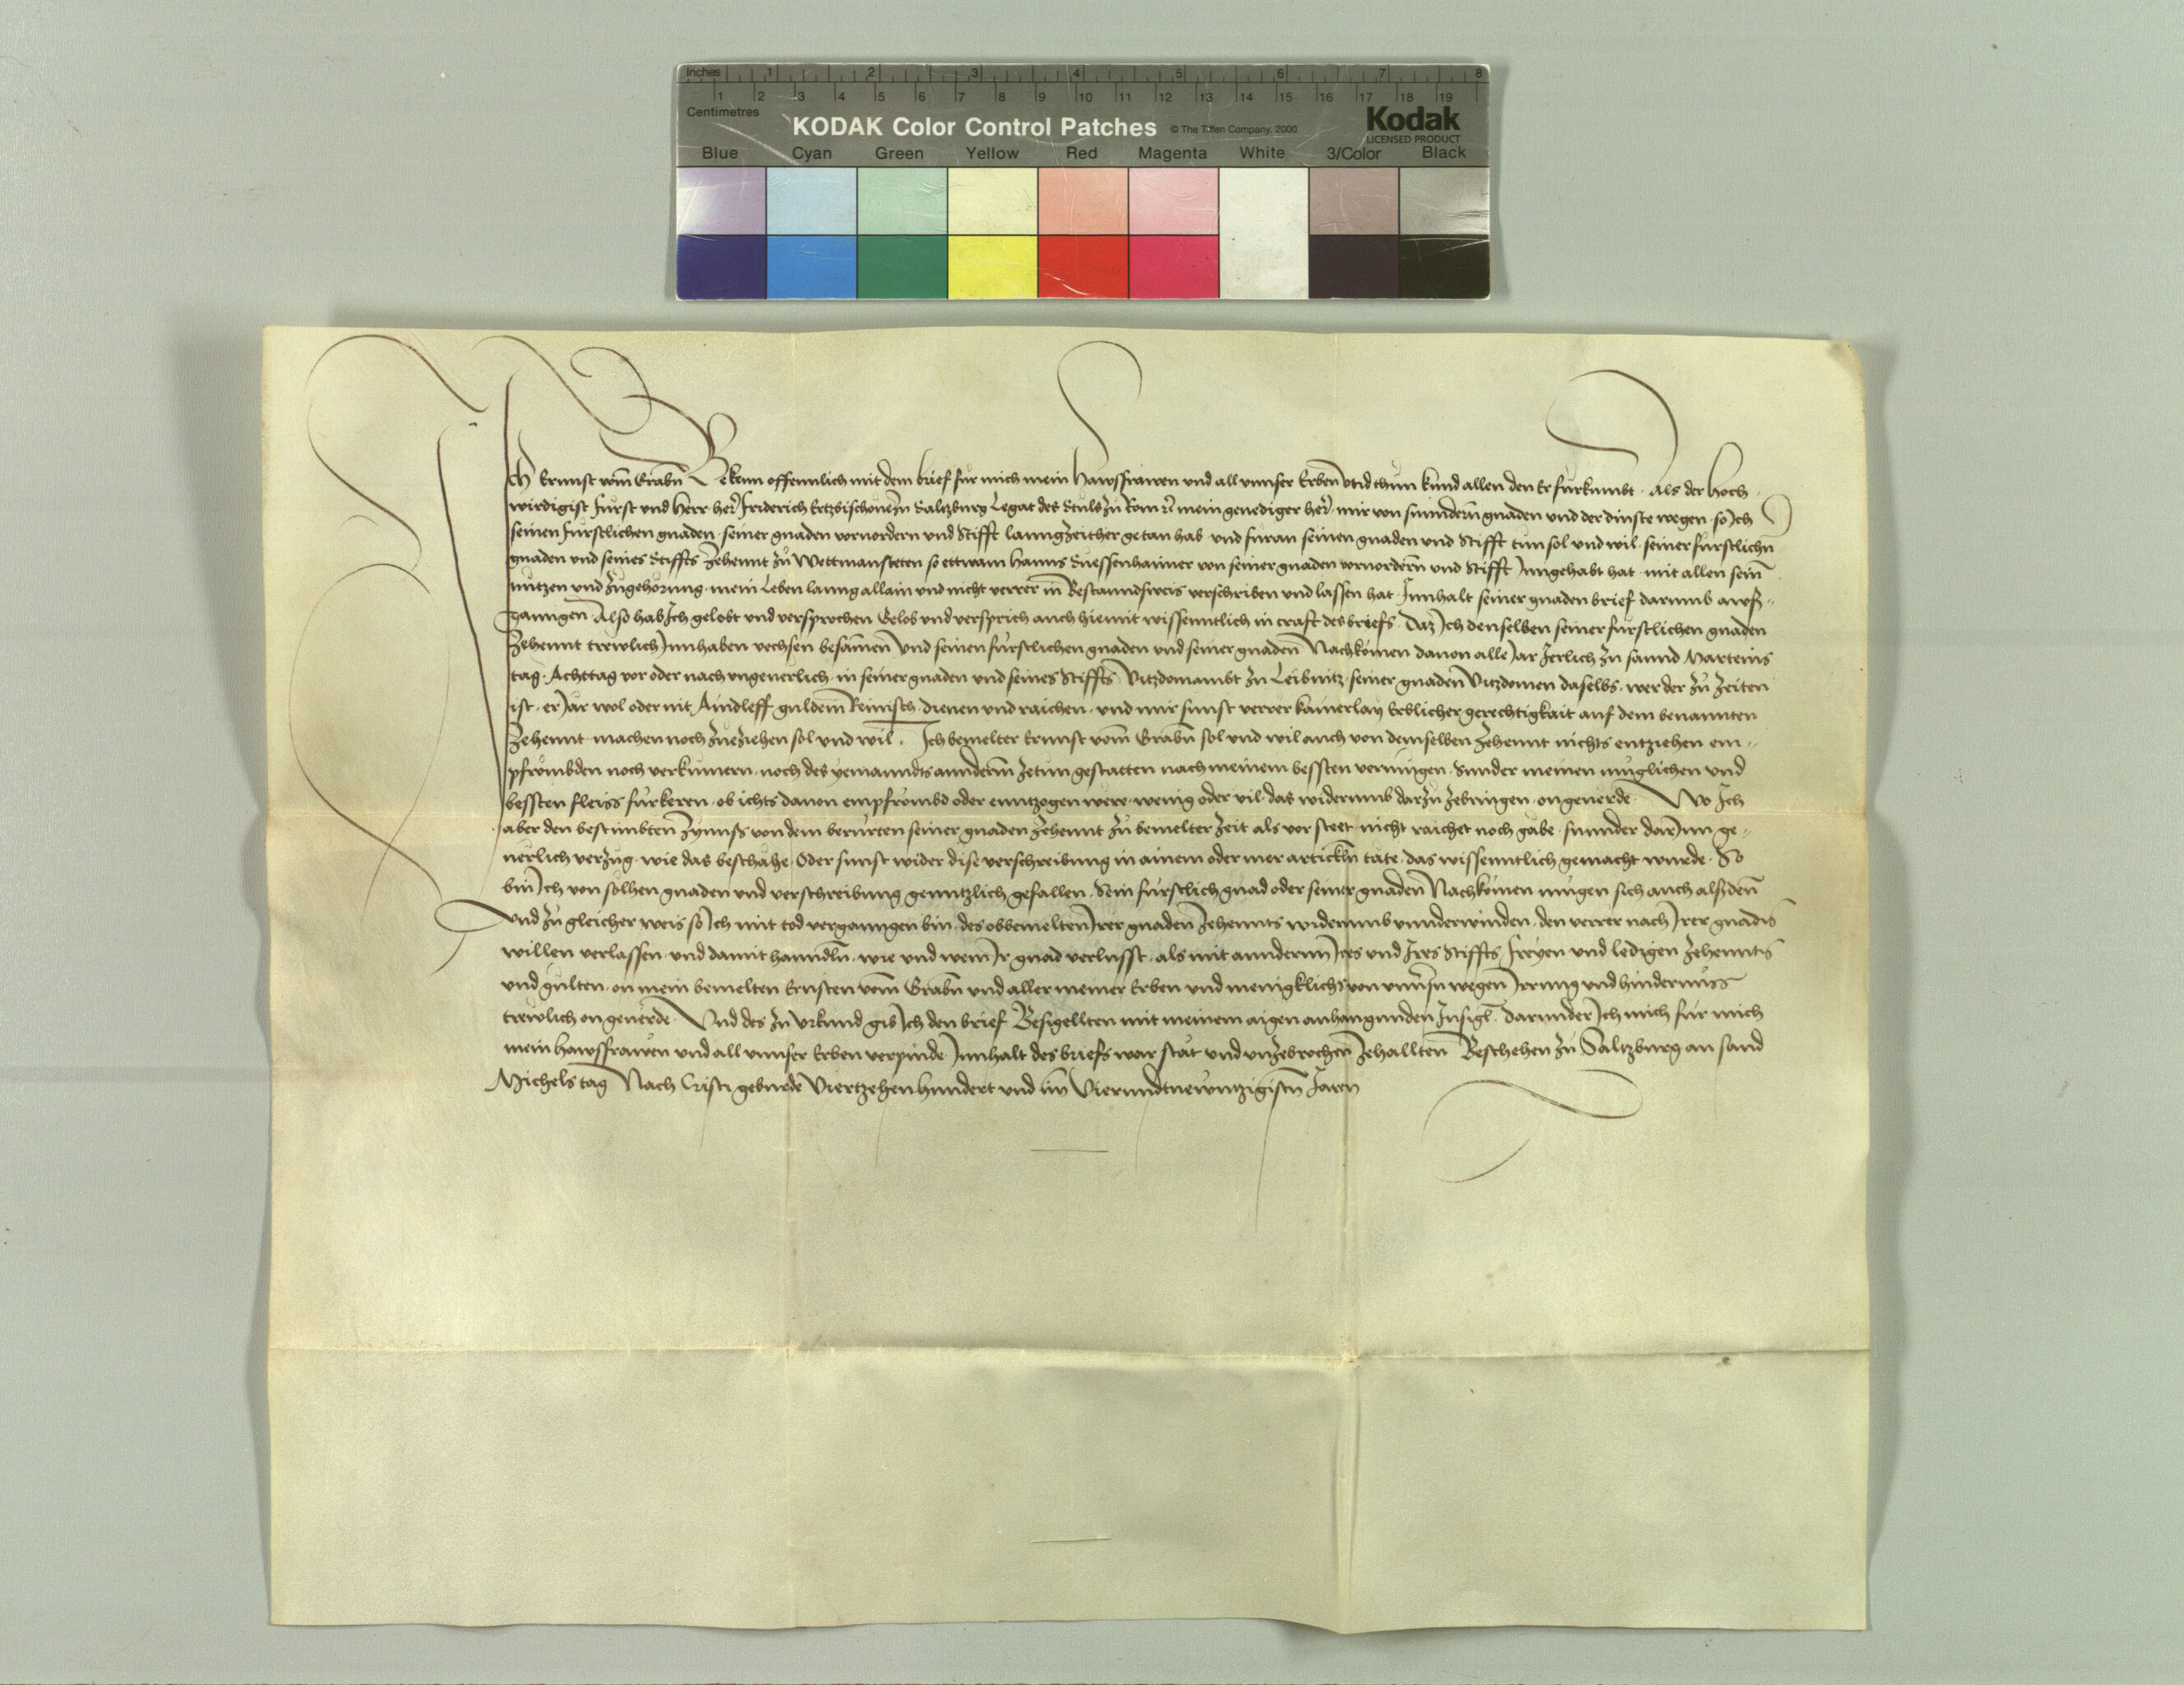 Inches 1 2 3 4 5 6 7 8
1 2 3 4 5 6 7 8 9 10 11 12 13 14 15 16 17 18 19
Centimetres
KODAK Color Control Patches © The Tiffen Company, 2000 Kodak
LICENSED PRODUCT
Blue Cyan Green Yellow Red Magenta White 3/Color Black
Ich Ernnst vom Grabn Bekenn offennlich mit dem brief fur mich mein Hawsfrawen und all unnser Erben und thun kund allen den Er furkumbt. Als der Hoch
wirdigist Furst und Herr her Friderich Ertzbischoue zu Saltzburg Legat des Stuls zu Rom mein genediger her mir von sunndern gnaden und der dinste wegen so Ich
seinen furstlichen gnaden seiner gnaden voruordern und Stifft lanngzeither getan hab und furan seinen gnaden und Stifft tun sol und wil seiner furstlichn
gnaden und seines Stiffts Zehennt zu Wettmansteten so ettwann Hanns Suessenhaimer von seiner gnaden voruordern und Stifft Inngehabt hat mit allen sein
nutzen und zugehorung mein Leben lanng allain und nicht verrer in Bestanndsweis verschriben und lassen hat Innhalt seiner gnaden brief darumb aws
ganngen Also hab Ich gelobt und versprochen Gelob und versprich auch hiemit wissenntlich in craft des briefs Daz Ich denselben seiner furstlichen gnaden
Zehennt trewlich Innhaben vechsen besamen und seinen furstlichen gnaden und seiner gnaden Nachkomen dauon alle Jar Jerlich zu sannd Marteins
tag Achttag vor oder nach ungeuerlich in seiner gnaden und seines Stiffts Vitzdomambt zu Leibnitz seiner gnaden Vitzdomen daselbs wer der zu zeiten
ist er Jar wol oder nit Aindleff guldein Reinisch dienen und raichen und mir sunst verrer kainerlay Erblicher gerechtigkait auf dem benannten
Zehennt machen noch zueziehen sol und wil. Ich bemelter Ernnst vom Grabn sol und wil auch von demselben Zehennt nichts entziehen em
pfrombden noch verkumern noch des yemanndts anndern zetun gestatten nach meinem bessten vermugen Sunder meinen muglichen und
bessten fleiss furkeren ob ichts dauon empfrombd oder enntzogen were wenig oder vil das widerumb darzu zebringen ongeuerde Wo Ich
aber den bestimbten Zynnss von dem berurten seiner gnaden Zehennt zu bemelter Zeit als vor steet nicht raichet noch gabe sunnder darInn ge
uerlich verzug wie das beschahe Oder sunst wider dise verschreibung in ainem oder mer artickln tate das wissenntlich gemacht wurde So
bin Ich von solhen gnaden und verschreibung genntzlich gefallen Sein furstlich gnad oder seiner gnaden Nachkomen mugen sich auch alssdenn
und zu gleicher weis so Ich mit tod vergangen bin des obbemelten Irer gnaden Zehennts widerumb unnderwinden den verrer nach Irer gnadn
willen verlassen und damit hanndln wie und wem Ir gnad verlusst als mit anndern Irs und Irs Stiffts freyen und ledigen Zehennts
und gulten on mein bemelten Ernsten vom Grabn und aller meiner Erben und menigklichs von unnsern wegen Irrung und hindernuss
trewlich ongeuerde Und des zu Urkund gib Ich den brief Besigellten mit meinem aigen anhangunden Insigl darunder Ich mich fur mich
mein Hawsfrawen und all unnser Erben verpinde Innhalt des briefs war stat und unzebrochen zehallten Beschehen zu Saltzburg an sand
Michels tag Nach Cristi geburde Viertzehenhundert und im Vierundtnewntzigistn Jaren